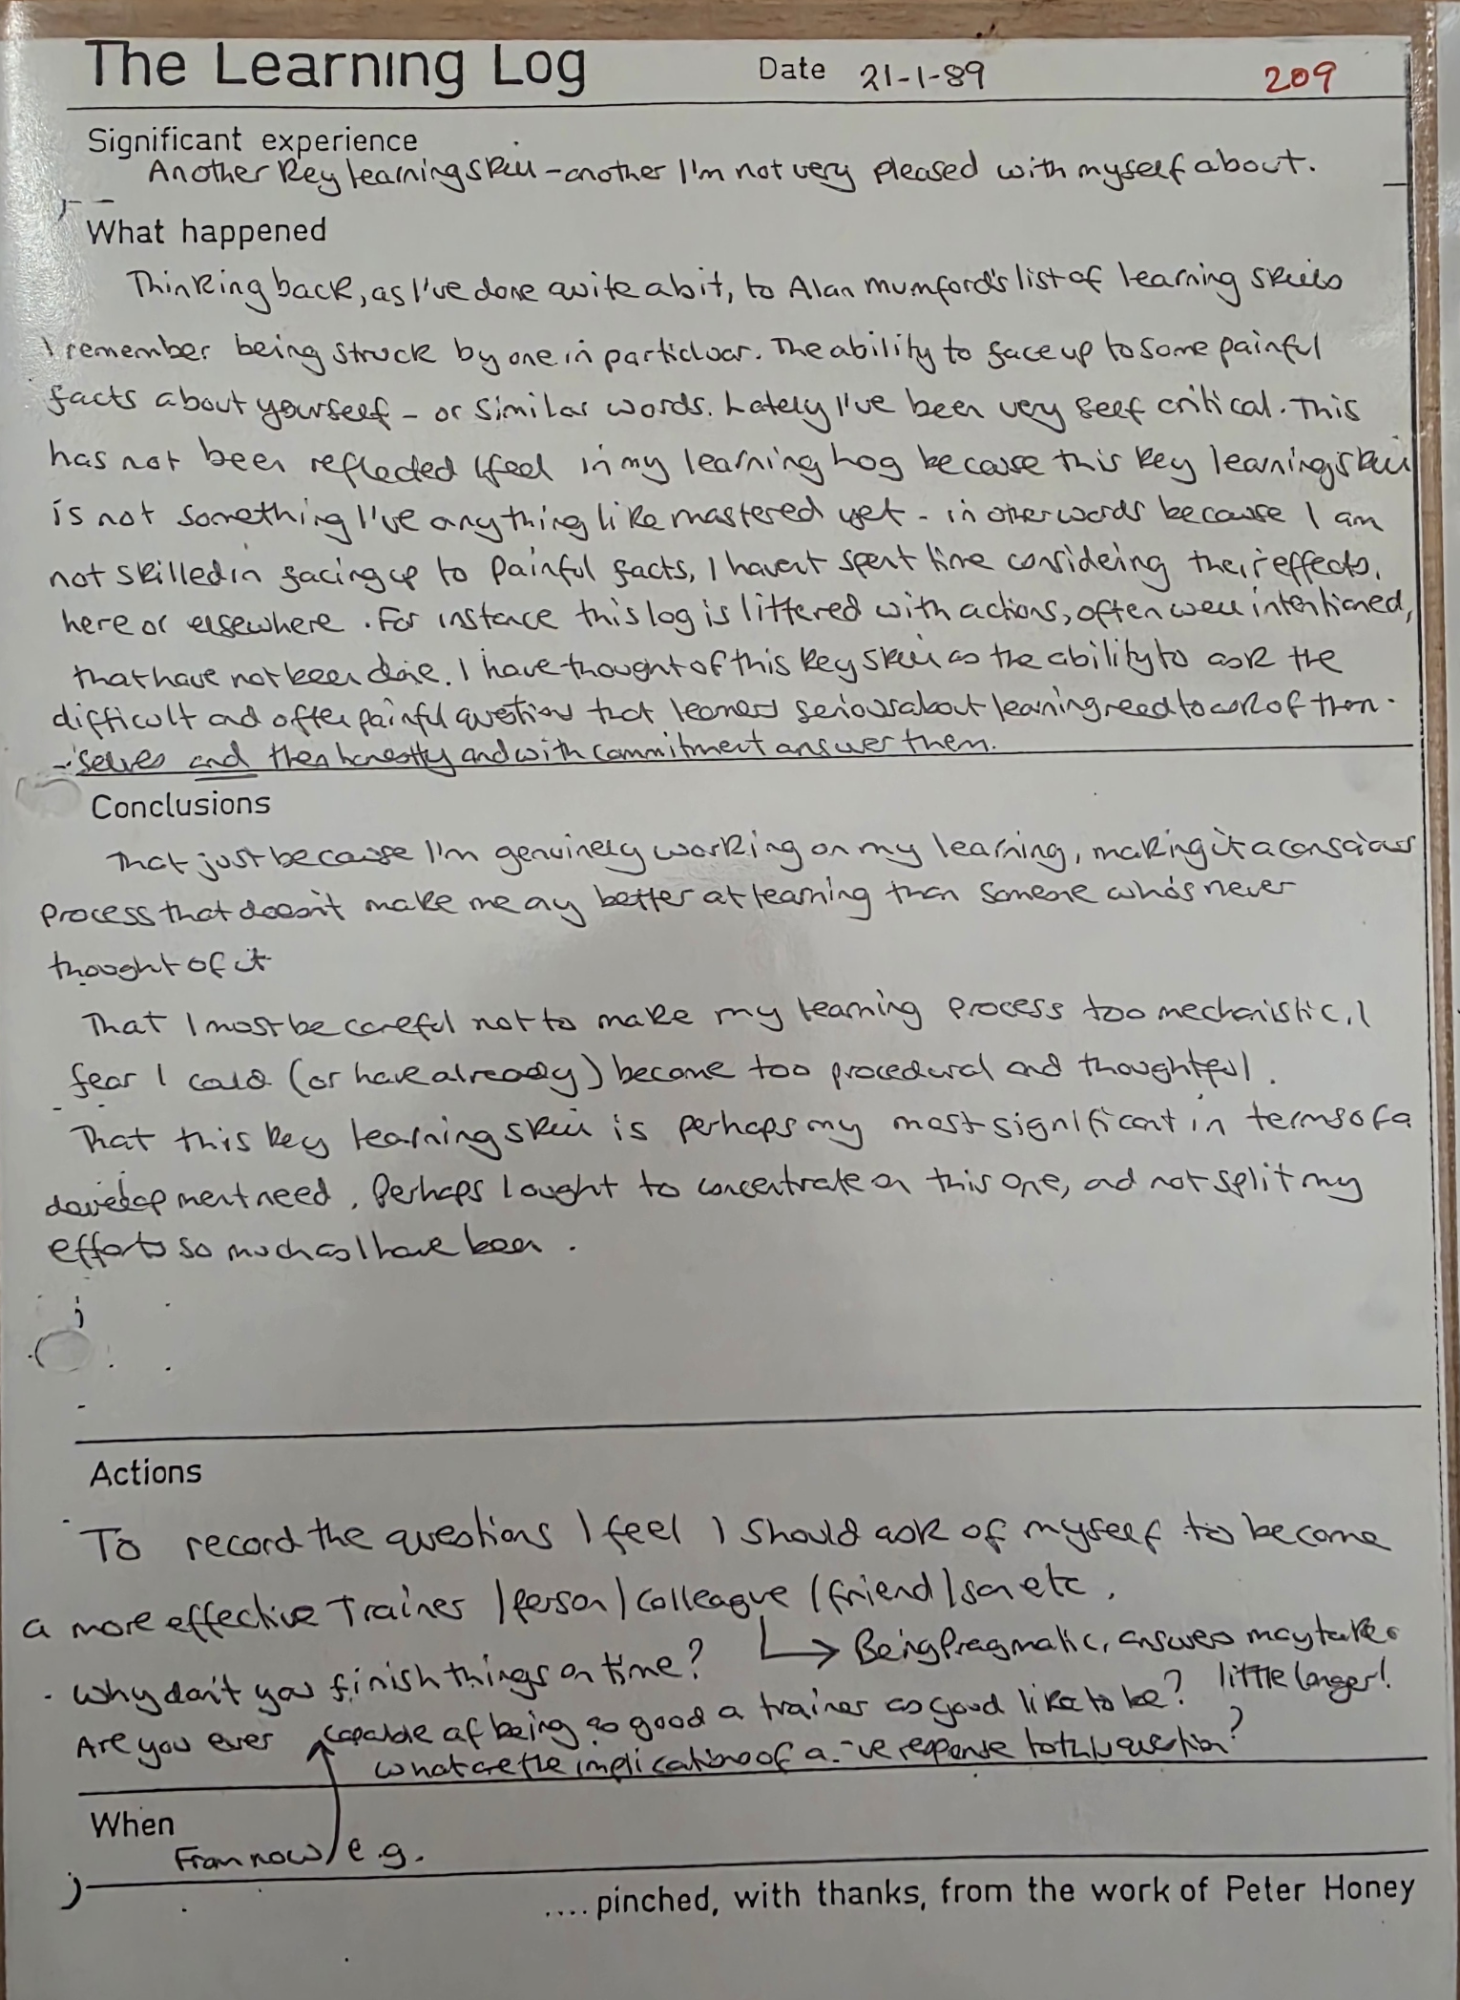 The Learning Log Date 21-1-89 209
Significant experience
Another Key learning skill - another I'm not very pleased with myself about.
What happened
Thinking back, as I've done quite a bit, to Alan Mumford's list of learning skills
I remember being struck by one in particluar. The ability to face up to some painful
facts about yourself - or similar words. Lately I've been very self critical. This
has not been reflected I feel in my learning Log because this key learning skill
is not something I've anything like mastered yet - in other words because I am
not skilled in facing up to painful facts, I haven't spent time considering their effects,
here or elsewhere. For instance this log is littered with actions, often well intentioned,
that have not been done. I have thought of this key skill as the ability to ask the
difficult and often painful questions that learners serious about learning need to ask of them-
-selves and then honestly and with commitment answer them.
Conclusions
That just because I'm genuinely working on my learning, making it a conscious
process that doesn't make me any better at learning than someone who's never
thought of it
That I must be careful not to make my learning process too mechanistic, I
fear I could (or have already) become too procedural and thoughtful.
That this key learning skill is perhaps my most significant in terms of a
development need. Perhaps I ought to concentrate on this one, and not split my
efforts so much as I have been.
Actions
To record the questions I feel I should ask of myself to become
a more effective Trainer / person / colleague / friend / son etc.
Being Pragmatic, answers may take a
little longer!
- Why don't you finish things on time?
Are you ever capable of being as good a trainer as good like to be?
What are the implications of a -ve response to this question?
When
From now / e.g.
.... pinched, with thanks, from the work of Peter Honey